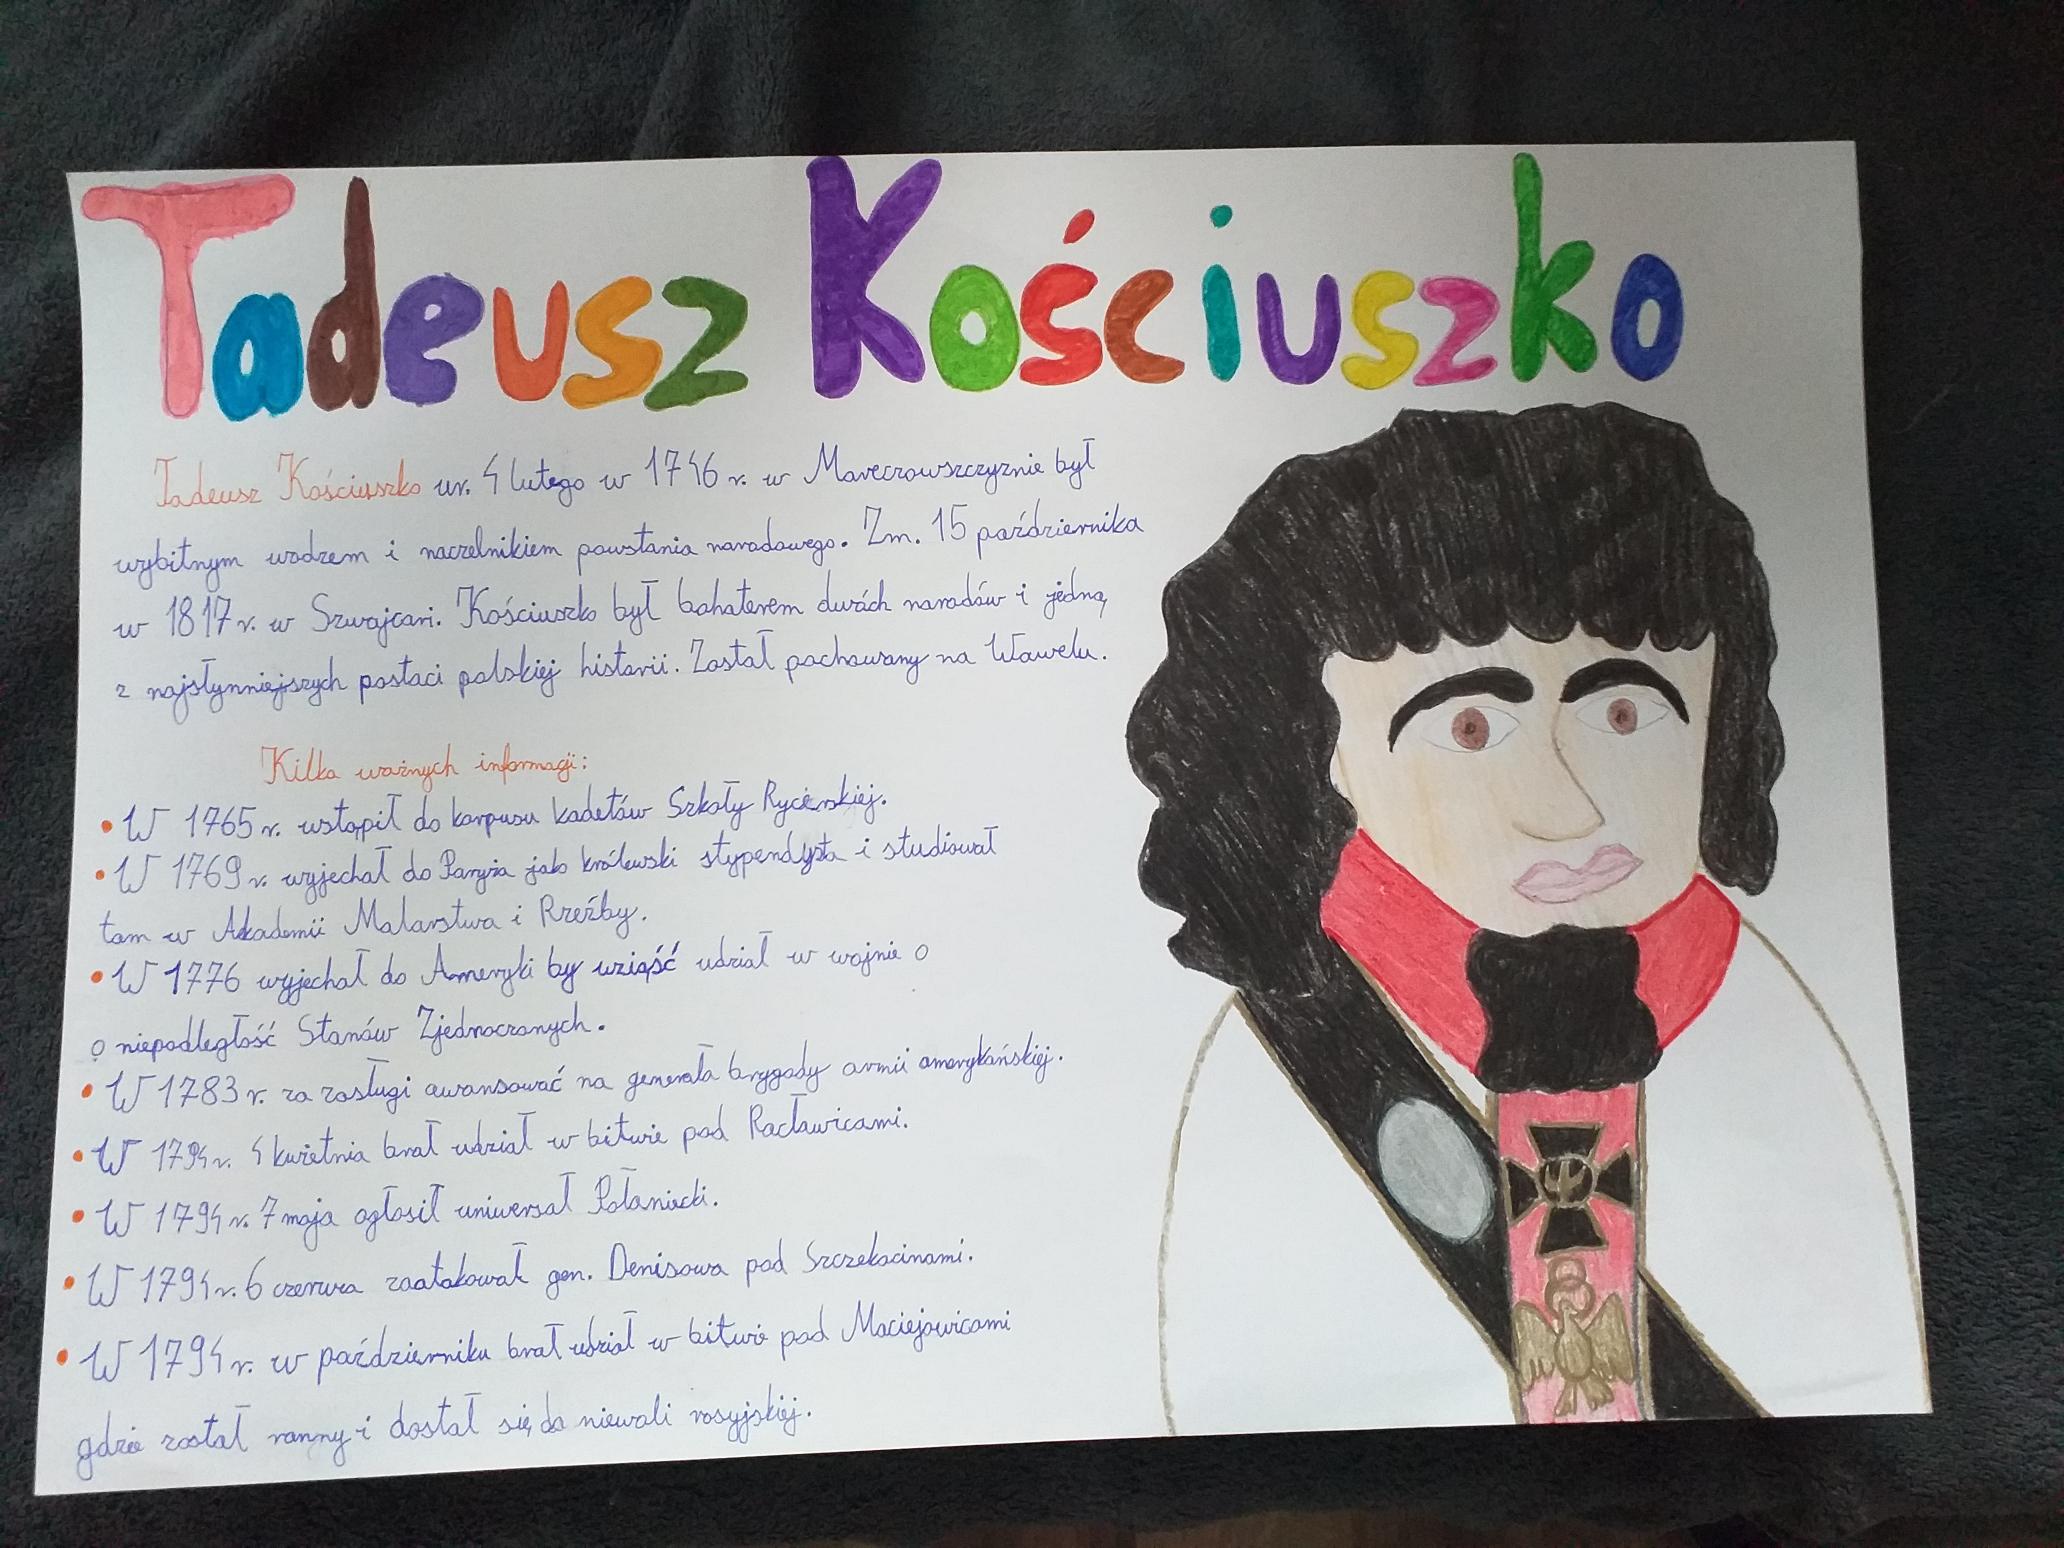 Tadeusz Kościuszko
Tadeusz Kościuszko ur. 4 lutego w 1746 r. w Mareczowszczyznie był
wybitnym wodzem i naczelnikiem powstania narodowego. Zm. 15 października
w 1817 r. w Szwajcari. Kościuszko był bohaterem dwóch narodów i jedną
z najsłynniejszych postaci polskiej historii. Został pochowany na Wawelu.
Kilka ważnych informacji:
• W 1765 r. wstąpił do korpusu kadetów Szkoły Rycerskiej.
• W 1769 r. wyjechał do Paryża jako królewski stypendysta i studiował
tam w Akademii Malarstwa i Rzeźby.
• W 1776 wyjechał do Ameryki by wziąść udział w wojnie o
o niepodległość Stanów Zjednoczonych.
• W 1783 r. za zasługi awansować na generała brygady armii amerykańskiej.
• W 1794 r. 4 kwietnia brał udział w bitwie pod Racławicami.
• W 1794 r. 7 maja ogłosił uniwersał Połaniecki.
• W 1794 r. 6 czerwca zaatakował gen. Denisowa pod Szczekocinami.
• W 1794 r. w październiku brał udział w bitwie pod Maciejowicami
gdzie został ranny i dostał się do niewoli rosyjskiej.